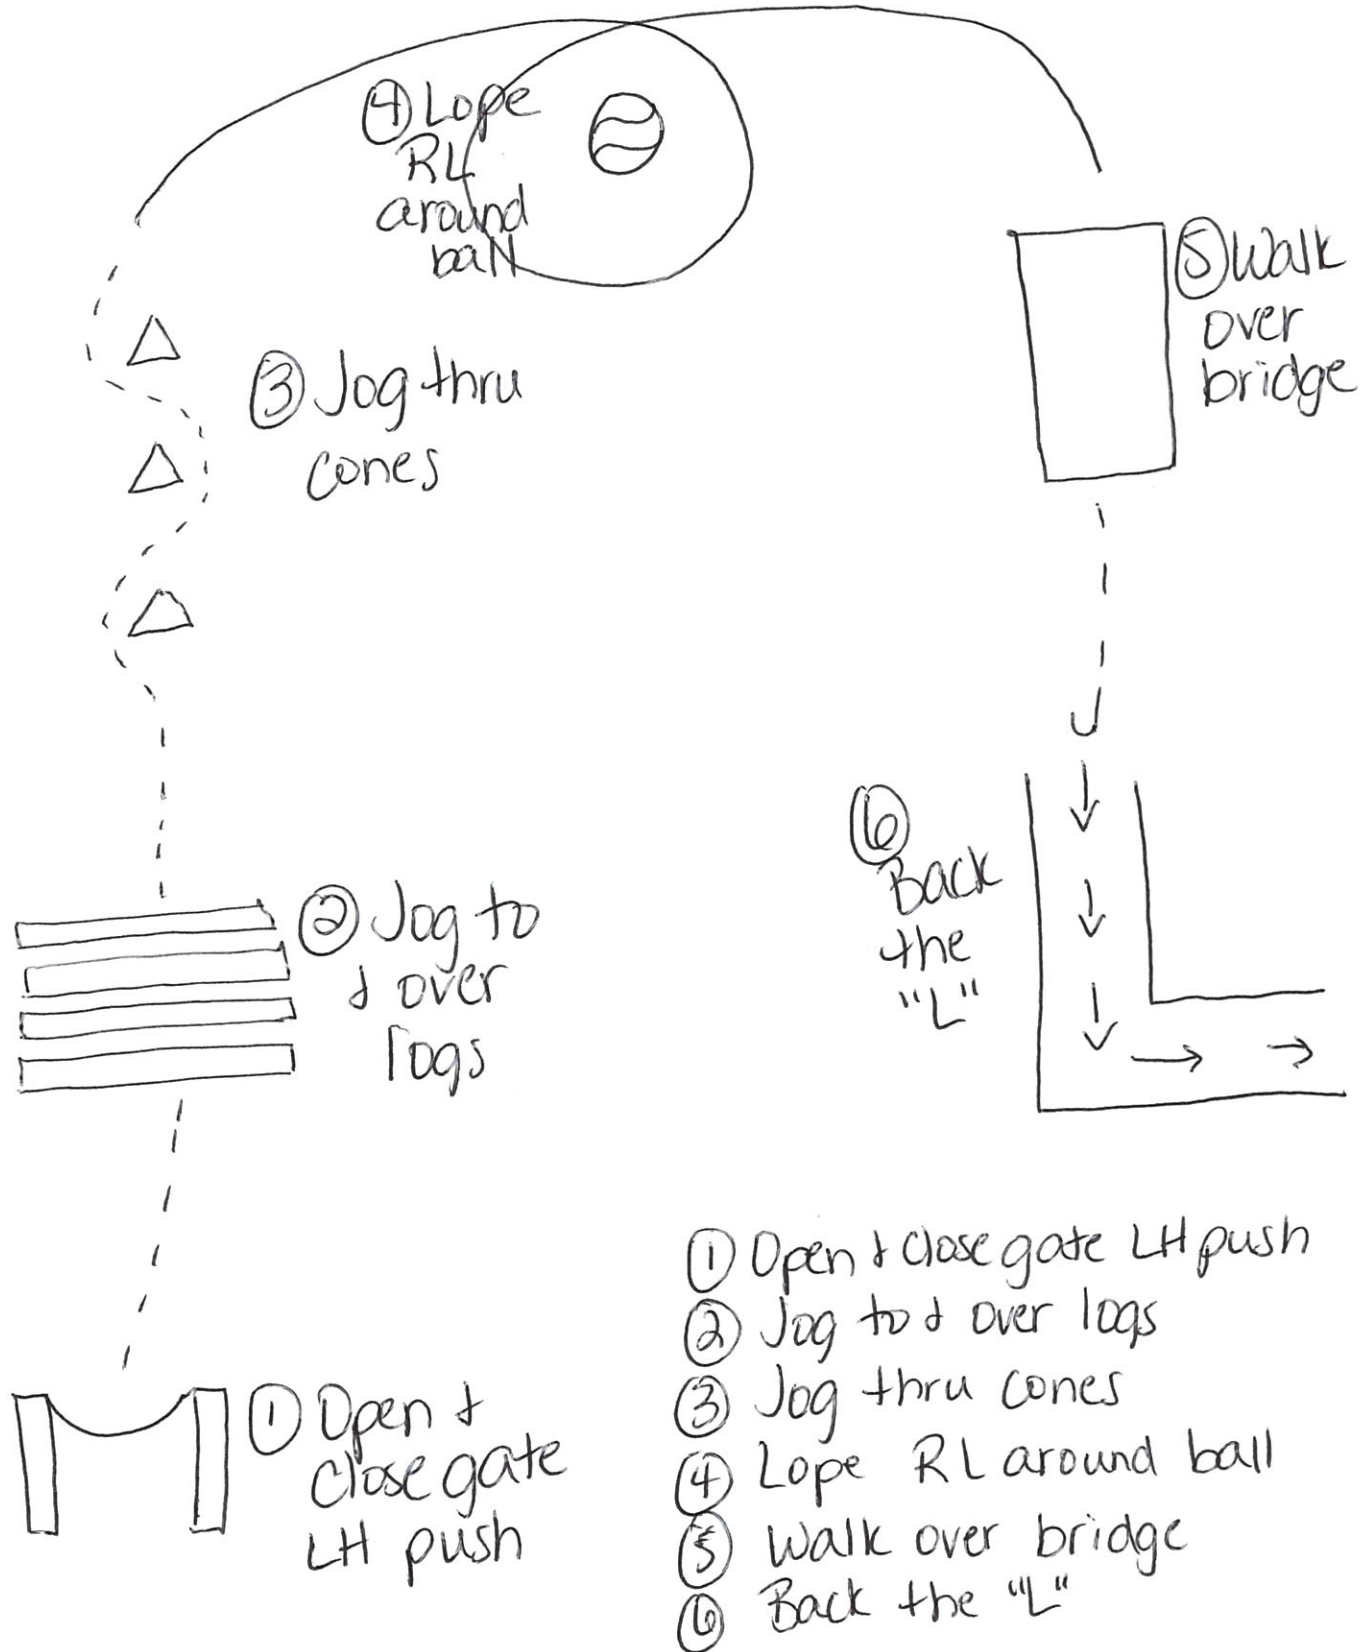 ④ Lope
RL
around
ball
⑤ Walk
over
bridge
③ Jog thru
cones
② Jog to
& over
logs
⑥
Back
the
"L"
① Open &
close gate
LH push
① Open & close gate LH push
② Jog to & over logs
③ Jog thru cones
④ Lope RL around ball
⑤ Walk over bridge
⑥ Back the "L"